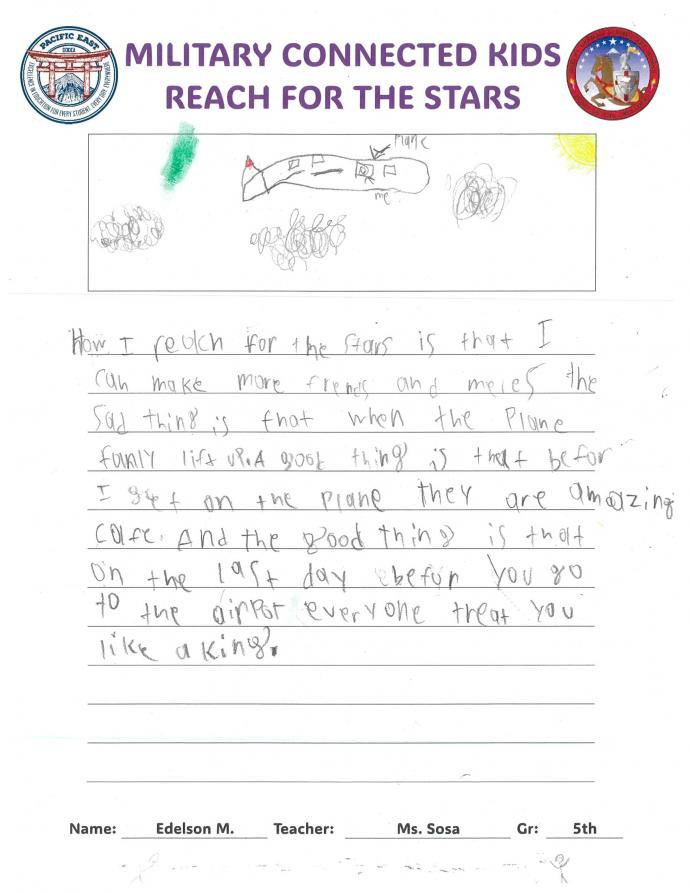 PACIFIC EAST
DODEA
EXCELLENCE IN EDUCATION FOR EVERY STUDENT, EVERY DAY, EVERYWHERE
MILITARY CONNECTED KIDS
REACH FOR THE STARS
Plane
me
How I reach for the stars is that I
can make more frends and the
Sad thing is that when the Plane
lift up. A good thing is that befor
I get on the Plane they are amazing
And the good thing is that
on the last day befor you go
to the airpot everyone treat you
like a King.
Name: Edelson M. Teacher: Ms. Sosa Gr: 5th